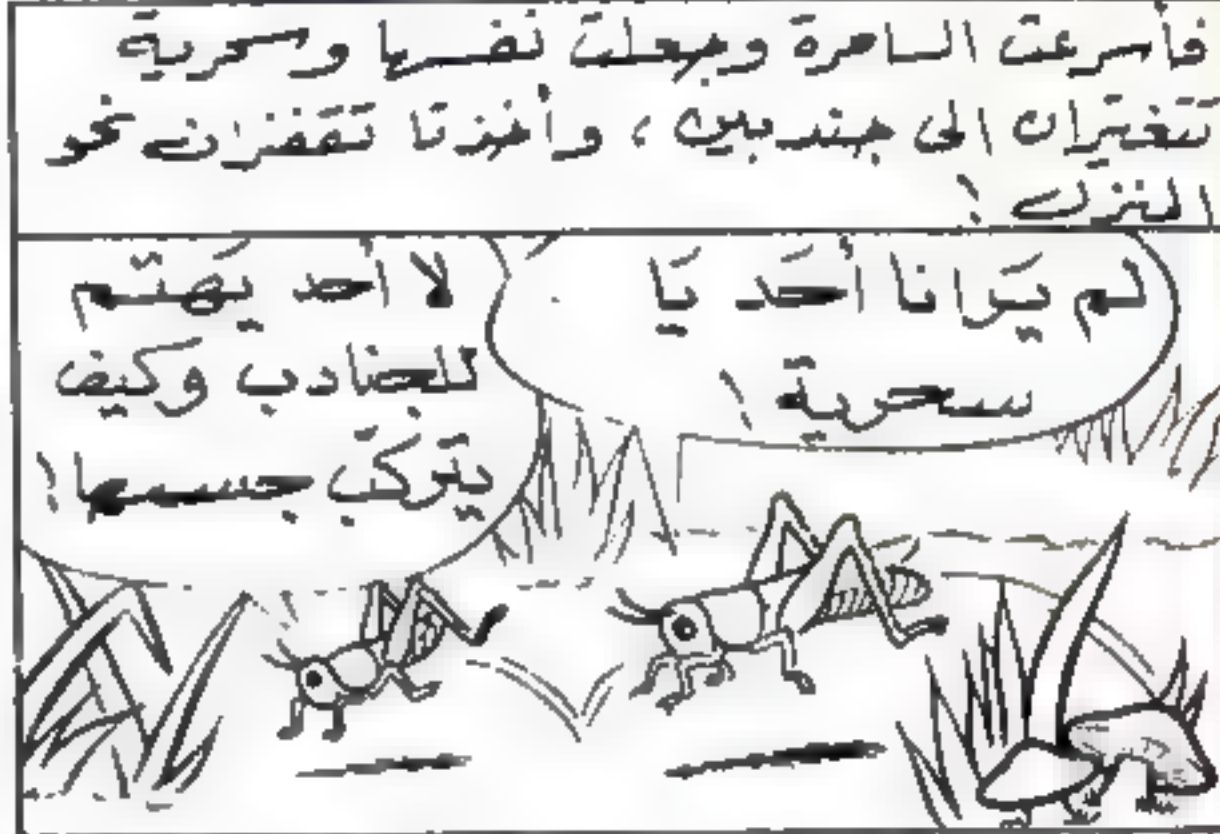 فأسرعت الساحرة وجعلت نفسها وسحرية
تتغيّران الى جندبين ، وأخذتا تقفزان نحو
المنزل !
لم يَرانا أحَد يَا
سحرية !
لا أحد يَهتّم
للجنادب وكيف
يتركّب جسمها !